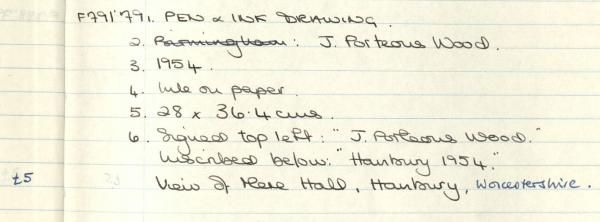 F791'79 1. PEN & INK DRAWING.
2. Birmingham: J. Porteous Wood.
3. 1954.
4. Ink on paper.
5. 28 x 36.4 cms.
6. Signed top left: "J. Porteous Wood."
Inscribed below: "Hanbury 1954."
£5 View of Mere Hall, Hanbury, Worcestershire.